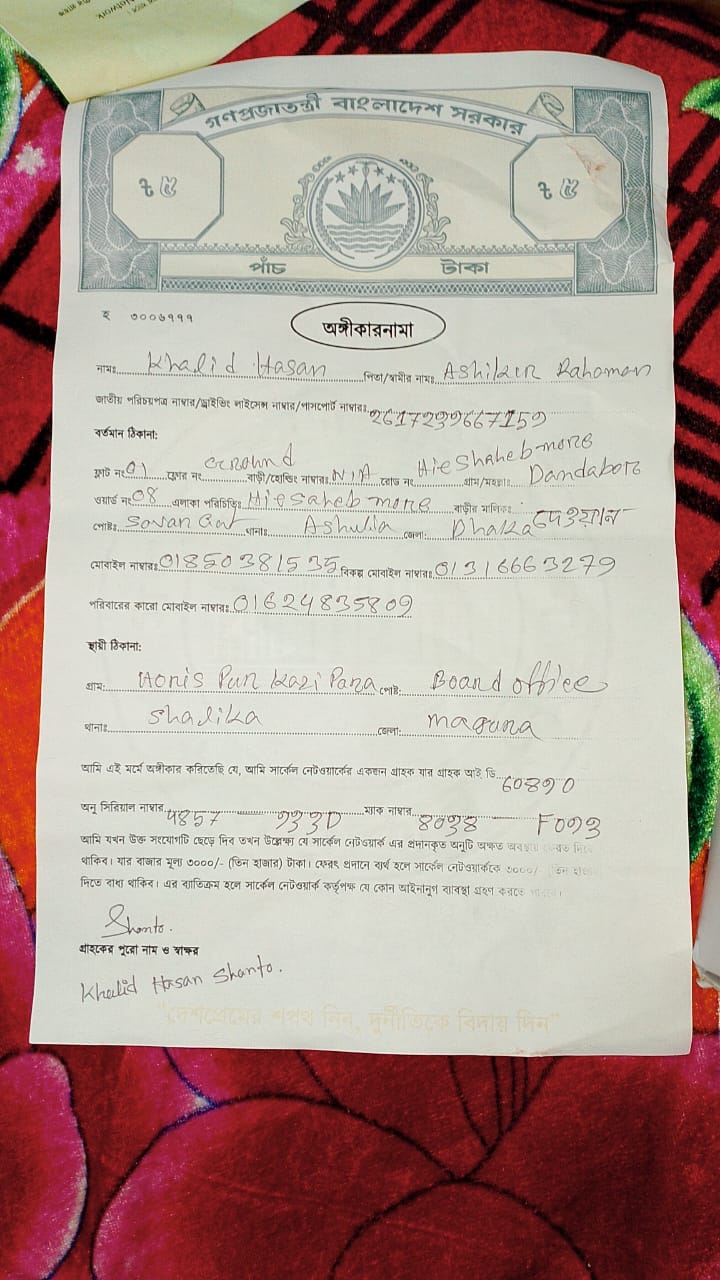 গণপ্রজাতন্ত্রী বাংলাদেশ সরকার
৳ ৫ ৳ ৫
পাঁচ টাকা
অঙ্গীকারনামা
নামঃ Khalid Hasan পিতা/স্বামীর নামঃ Ashiker Rahoman
জাতীয় পরিচয়পত্র নাম্বার/ড্রাইভিং লাইসেন্স নাম্বার/পাসপোর্ট নাম্বারঃ
বর্তমান ঠিকানা:
ফ্লাট নং 01 ফ্লোর নং Ground বাড়ী/হোল্ডিং নাম্বারঃ N/A রোড নং Hieshaheb more গ্রাম/মহল্লাঃ Dandabore
ওয়ার্ড নং 08 এলাকা পরিচিতিঃ Hiesaheb more বাড়ীর মালিকঃ দেওয়ান
পোষ্টঃ Savan Cat থানাঃ Ashulia জেলা: Dhaka
মোবাইল নাম্বারঃ 01850381535 বিকল্প মোবাইল নাম্বারঃ 01316663279
পরিবারের কারো মোবাইল নাম্বারঃ 01624835809
স্থায়ী ঠিকানা:
গ্রাম: Horis Pur Kazi Para পোষ্ট: Board office
থানাঃ Shalika জেলা: magura
আমি এই মর্মে অঙ্গীকার করিতেছি যে, আমি সার্কেল নেটওয়ার্কের একজন গ্রাহক যার গ্রাহক আই. ডি. 60890
অনু সিরিয়াল নাম্বার 4857 933D ম্যাক নাম্বার 8038 F093
আমি যখন উক্ত সংযোগটি ছেড়ে দিব তখন উল্লেক্ষ্য যে সার্কেল নেটওয়ার্ক এর প্রদানকৃত অনুটি অক্ষত অবস্থায় ফেরত দিতে
থাকিব। যার বাজার মূল্য ৩০০০/- (তিন হাজার) টাকা। ফেরৎ প্রদানে ব্যর্থ হলে সার্কেল নেটওয়ার্ককে ৩০০০/ (তিন হাজার
দিতে বাধ্য থাকিব। এর ব্যতিক্রম হলে সার্কেল নেটওয়ার্ক কর্তৃপক্ষ যে কোন আইনানুগ ব্যবস্থা গ্রহণ করতে পারবে।
Shanto.
গ্রাহকের পুরো নাম ও স্বাক্ষর
Khalid Hasan Shanto.
"দেশপ্রেমের শপথ নিন, দুর্নীতিকে বিদায় দিন"